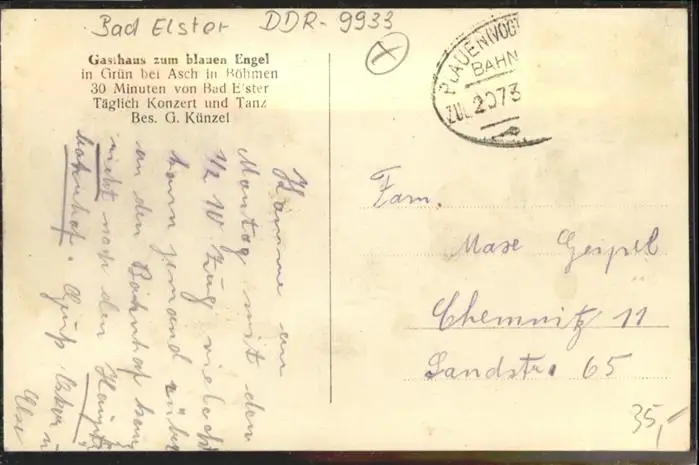 Bad Elster DDR-9933
Gasthaus zum blauen Engel
in Grün bei Asch in Böhmen
30 Minuten von Bad Elster
Täglich Konzert und Tanz
Bes. G. Künzel
PLAUEN (VOGT
BAHN
ZUG 2073
Komme am
Montag mit dem
1/2 10 Zug vieleicht
kann jemand rüber
an den Bahnhof
nicht nach den Haupt
bahnhof. Gruß
Else
Fam.
Max Geipel
Chemnitz 11
Landstr. 65
35,-